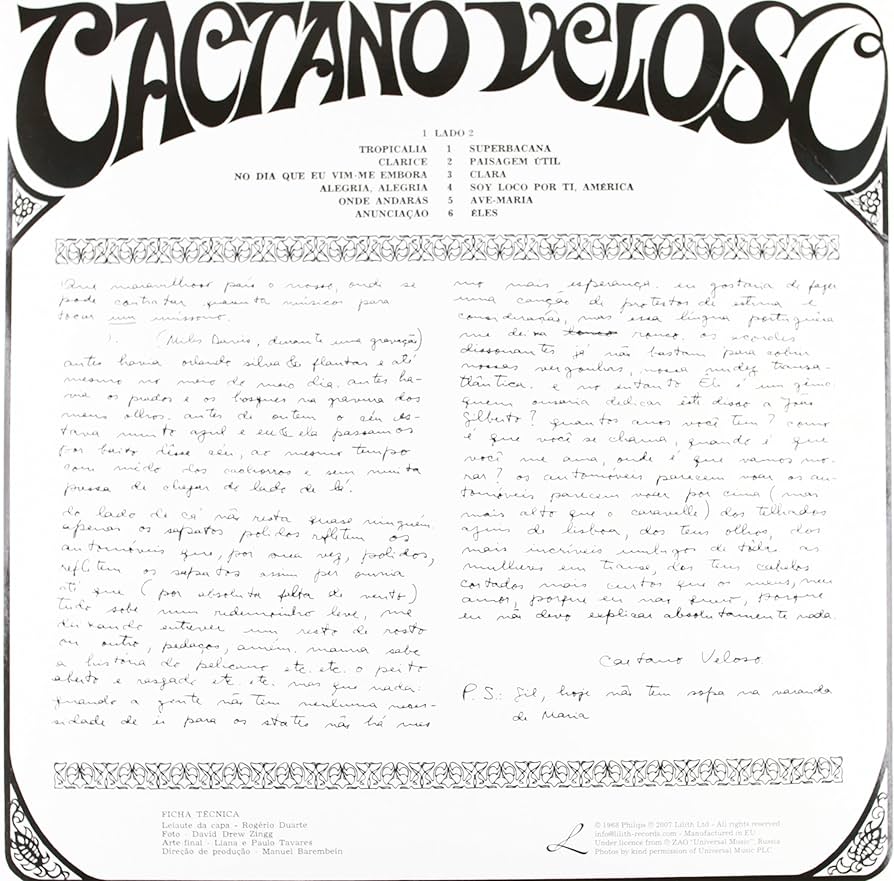 CAETANO VELOSO
1 LADO 2
TROPICALIA 1 SUPERBACANA
CLARICE 2 PAISAGEM ÚTIL
NO DIA QUE EU VIM-ME EMBORA 3 CLARA
ALEGRIA, ALEGRIA 4 SOY LOCO POR TI, AMÉRICA
ONDE ANDARAS 5 AVE-MARIA
ANUNCIAÇÃO 6 ÊLES
Que maravilhoso país o nosso, onde se
pode contratar quarenta músicos para
tocar um uníssono.
(Miles Davis, durante uma gravação)
antes havia orlando silva & flautas e até
mesmo no meio do meio dia. antes ha-
via os prados e os bosques na gravura dos
meus olhos. antes de ontem o céu es-
tava muito azul e eu e ela passamos
por baixo dêsse céu, ao mesmo tempo
com mêdo dos cachorros e sem muita
pressa de chegar do lado de lá.
do lado de cá não resta quase ninguém.
apenas os sapatos polidos refletem os
automóveis que, por sua vez, polidos,
refletem os sapatos assim per omnia
até que (por absoluta falta de vento)
tudo sobe num redemoinho leve, me
deixando entrever um resto de rosto
ou outro, pedaços, amém. mamãe sabe
a história do pelicano etc. etc. o peito
aberto e rasgado etc. etc. mas que nada:
quando a gente não tem nenhuma neces-
sidade de ir para os states não há mes
mo mais esperança. eu gostaria de fazer
uma canção de protestos de estima e
consideração, mas essa língua portuguêsa
me deixa rouco. os acordes
dissonantes já não bastam para cobrir
nossas vergonhas, nossa nudez transa-
tlântica. e no entanto Ele é um gênio.
quem ousaria dedicar êste disco a João
Gilberto? quantos anos você tem? como
é que você se chama, quando é que
você me ama, onde é que vamos mo-
rar? os automóveis parecem voar os au-
tomóveis parecem voar por cima (mas
mais alto que o caravelle) dos telhados
azuis de lisboa, dos teus olhos, dos
mais incríveis umbigos de tôdas as
mulheres em transe, dos teus cabelos
cortados mais curtos que os meus, meu
amor, porque eu não quero, porque
eu não devo explicar absolutamente nada.
Caetano Veloso.
P.S.: Gil, hoje não tem sopa na varanda
de Maria
FICHA TÉCNICA
Leiaute da capa - Rogério Duarte
Foto - David Drew Zingg
Arte final - Liana e Paulo Tavares
Direção de produção - Manuel Barembein
L
© 1968 Philips ℗ 2007 Lilith Ltd - All rights reserved
info@lilith-records.com - Manufactured in EU
Under licence from © ZAO "Universal Music", Russia
Photos by kind permission of Universal Music PLC